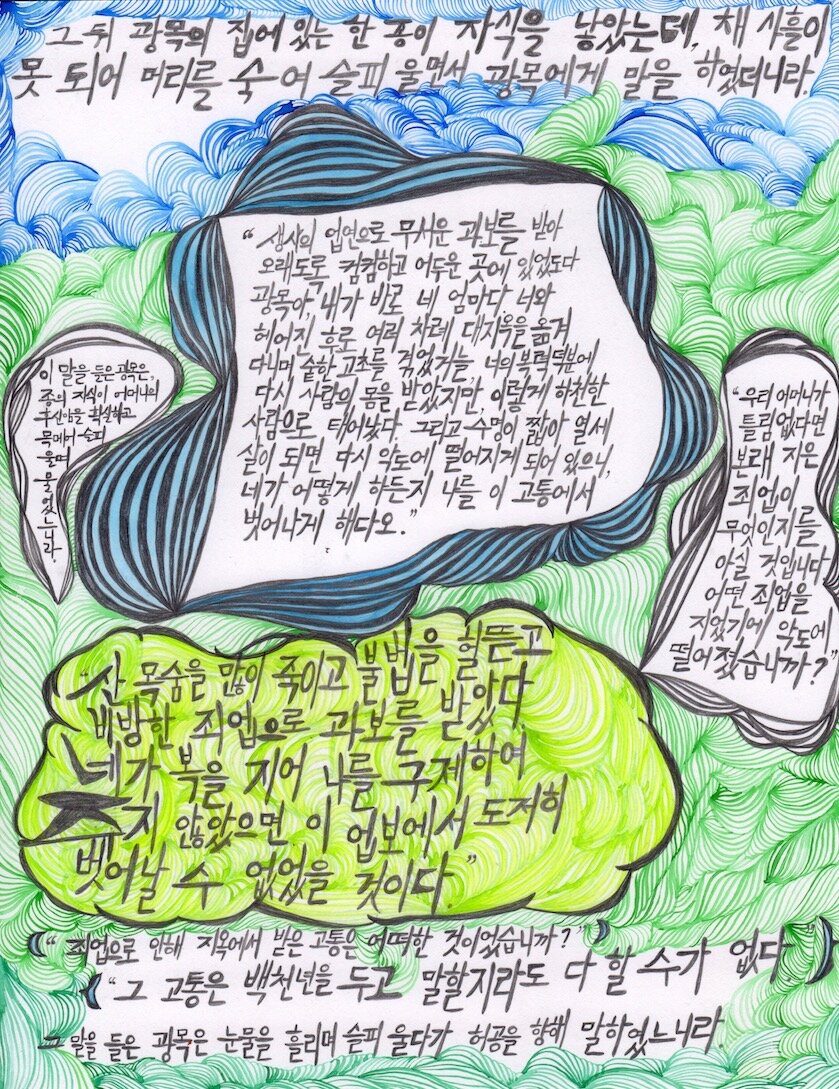 그 뒤 광목의 집에 있는 한 종이 자식을 낳았는데, 채 사흘이
못 되어 머리를 숙여 슬피 울면서 광목에게 말을 하였더니라.
“생사의 업연으로 무서운 과보를 받아
오래도록 컴컴하고 어두운 곳에 있었도다
광목아, 내가 바로 네 엄마다 너와
헤어진 후로 여러 차례 대지옥을 옮겨
다니며 숱한 고초를 겪었거늘, 너의 복력덕분에
다시 사람의 몸을 받았지만, 이렇게 하천한
사람으로 태어났다. 그리고 수명이 짧아 열세
살이 되면 다시 악도에 떨어지게 되어 있으니,
네가 어떻게 하든지 나를 이 고통에서
벗어나게 해다오.”
이 말을 들은 광목은,
종의 자식이 어머니의
후신임을 확실하고
목메어 슬피
울며
물었느니라.
“우리 어머니가
틀림없다면
본래 지은
죄업이
무엇인지를
아실 것입니다
어떤 죄업을
지었기에 악도에
떨어졌습니까?”
“산 목숨을 많이 죽이고 불법을 헐뜯고
비방한 죄업으로 과보를 받았다.
네가 복을 지어 나를 구제하여
주지 않았으면 이 업보에서 도저히
벗어날 수 없었을 것이다.”
“죄업으로 인해 지옥에서 받은 고통은 어떠한 것이었습니까?”
“그 고통은 백천년을 두고 말할지라도 다 할 수가 없다.”
그 말을 들은 광목은 눈물을 흘리며 슬피 울다가 허공을 향해 말하였느니라.